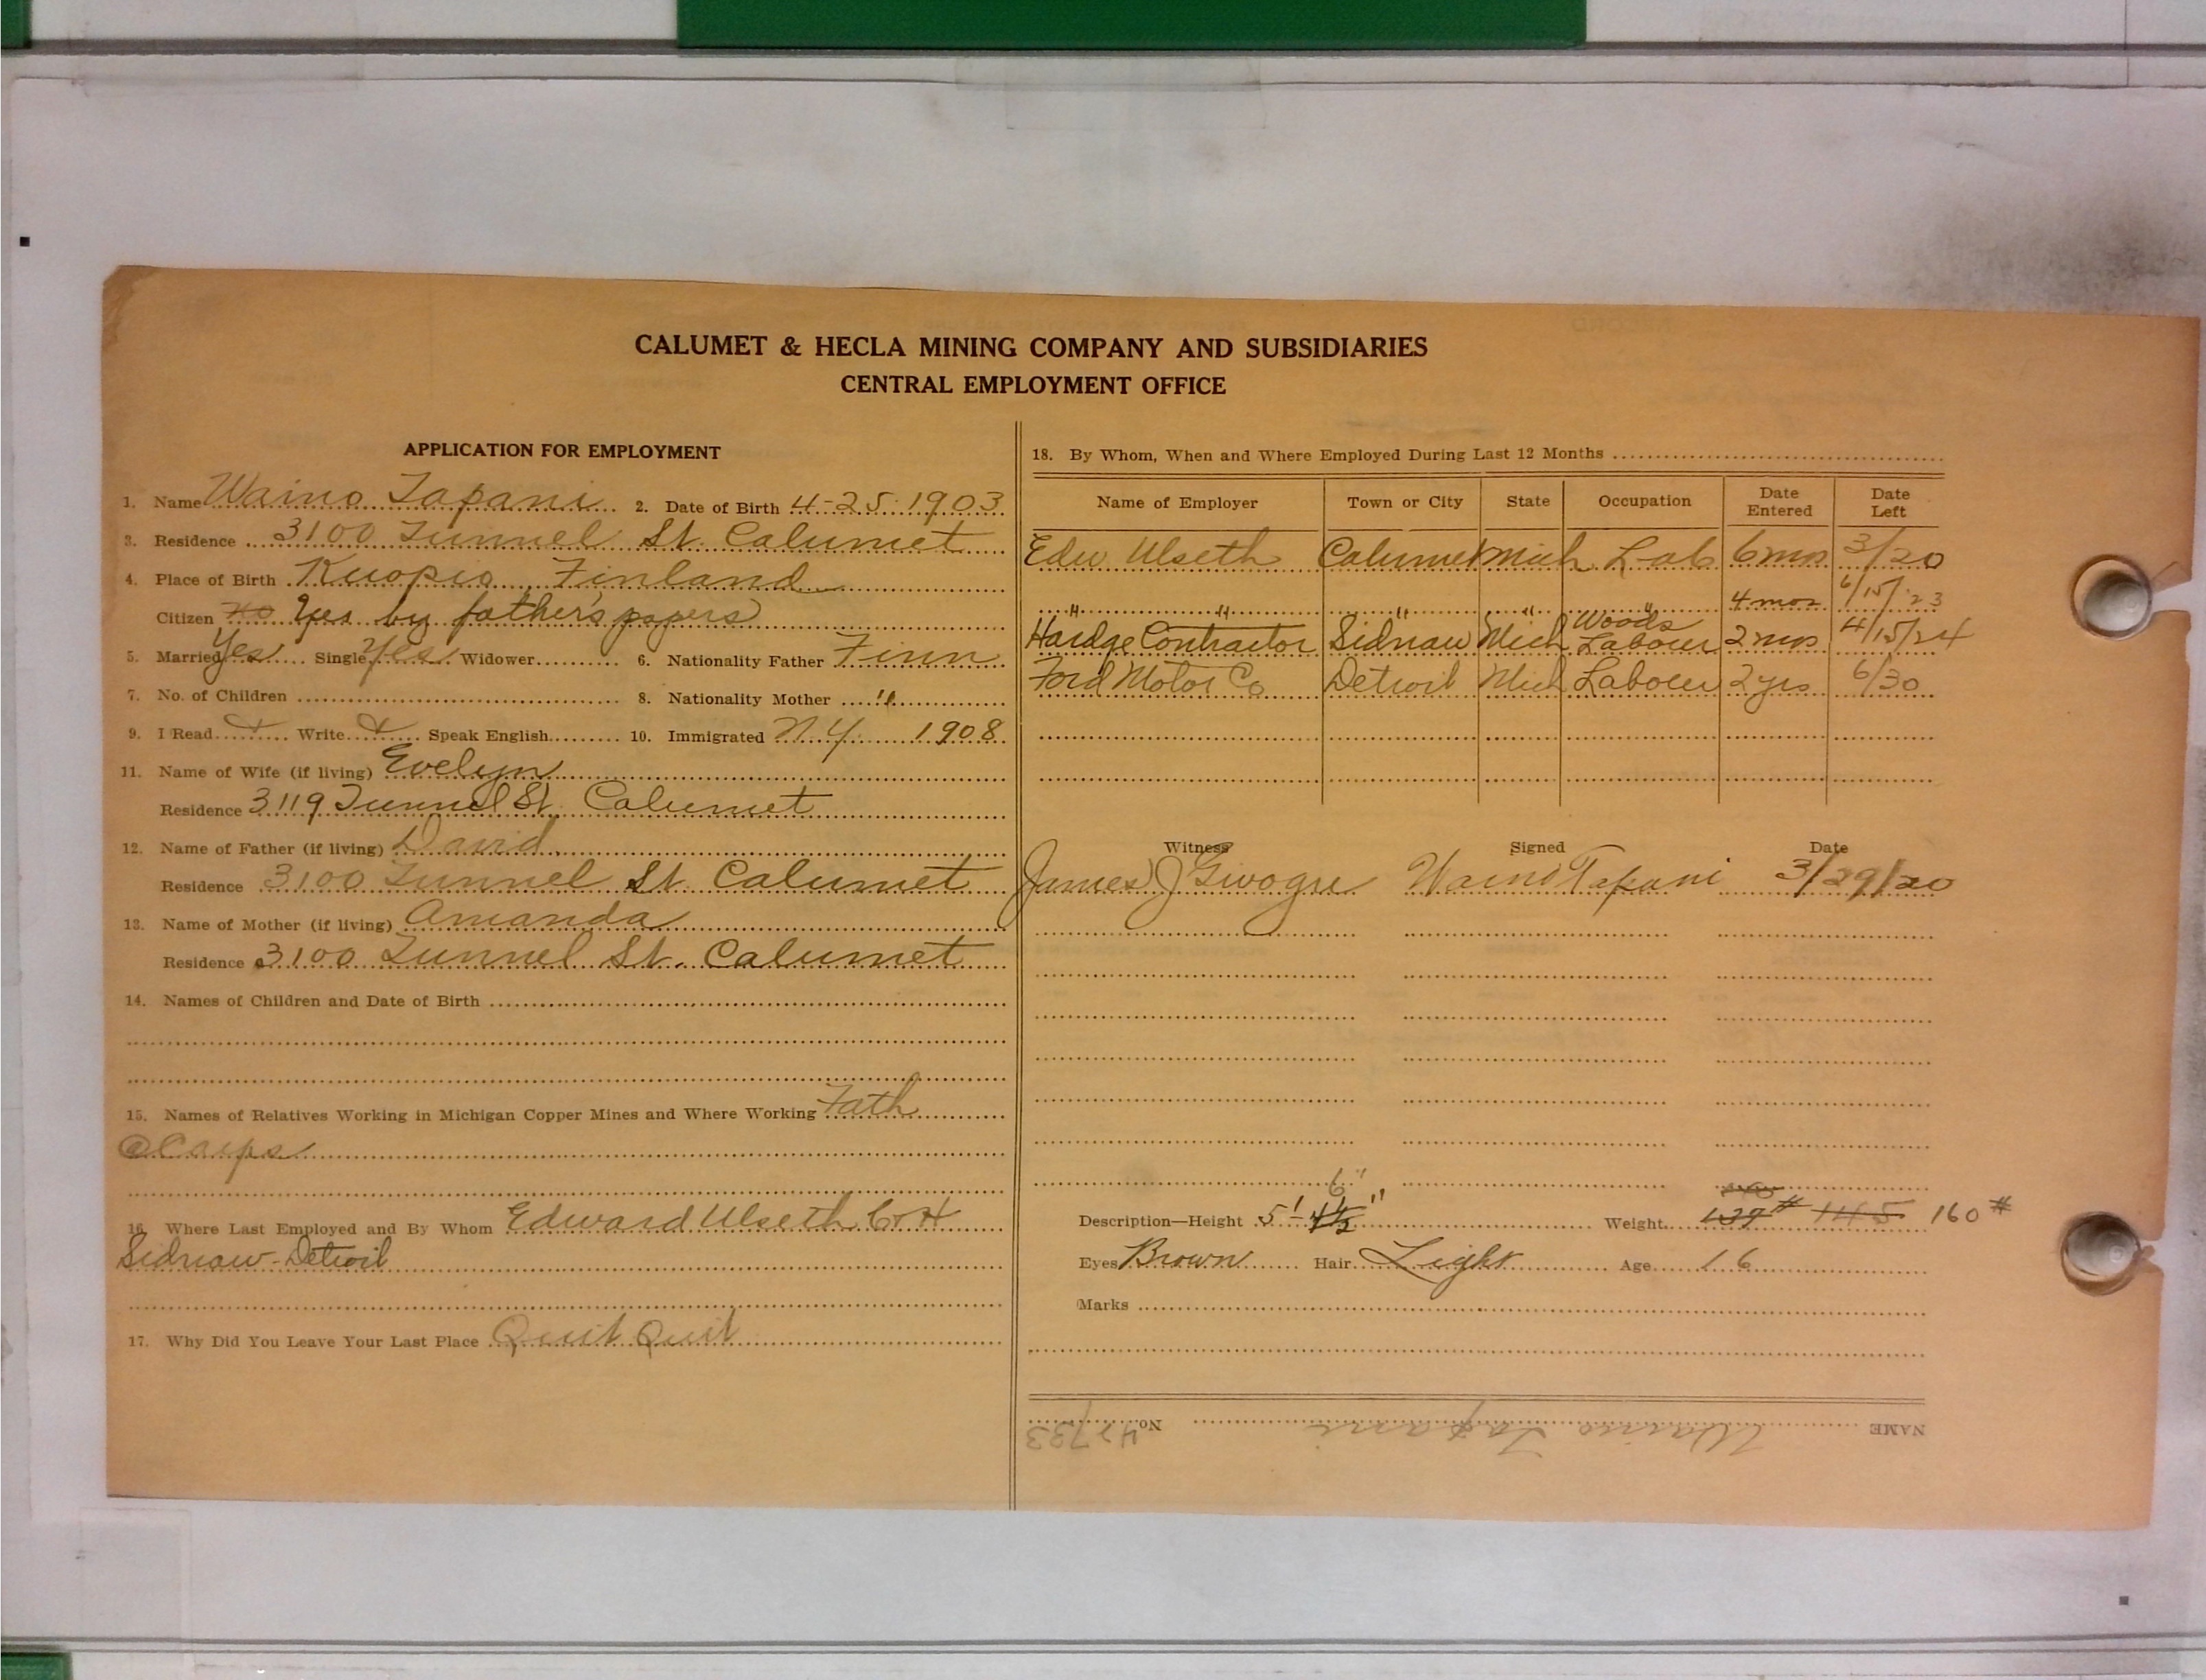 CALUMET & HECLA MINING COMPANY AND SUBSIDIARIES
CENTRAL EMPLOYMENT OFFICE
APPLICATION FOR EMPLOYMENT
1. Name Waino Tapani 2. Date of Birth 4-25-1903
3. Residence 3100 Tunnel St. Calumet
4. Place of Birth Kuopio, Finland
Citizen no Yes by father's papers
5. Married Yes Single Yes Widower 6. Nationality Father Finn
7. No. of Children 8. Nationality Mother "
9. I Read Write Speak English 10. Immigrated N.Y. 1908
11. Name of Wife (if living) Evelyn
Residence 3119 Tunnel St. Calumet
12. Name of Father (if living) David
Residence 3100 Tunnel St. Calumet
13. Name of Mother (if living) Amanda
Residence 3100 Tunnel St. Calumet
14. Names of Children and Date of Birth
15. Names of Relatives Working in Michigan Copper Mines and Where Working Fath
16. Where Last Employed and By Whom Edward Ulseth C+H
Sidnaw-Detroit
17. Why Did You Leave Your Last Place Quit Quit
18. By Whom, When and Where Employed During Last 12 Months
Name of Employer Town or City State Occupation Date Entered Date Left
Edw Ulseth Calumet Mich Lab 6 mos 3/20
" " " " " 4 mos 6/15/23
Hardge Contractor Sidnaw Mich Woods Labour 2 mos 4/15/24
Ford Motor Co Detroit Mich Labour 2 yrs 6/30
Witness Signed Date
James J Waino Tapani 3/29/20
Description—Height 5'-4½" 6" Weight 139# 145 160#
Eyes Brown Hair Light Age 16
Marks
NAME Waino Tapani No.